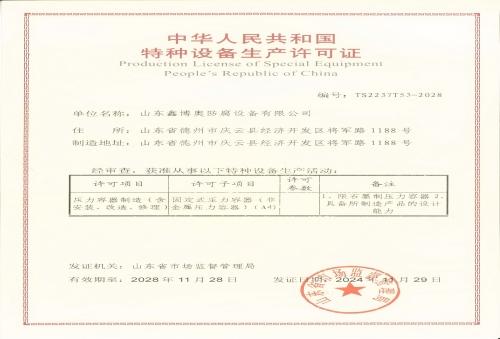 中华人民共和国
特种设备生产许可证
Production License of Special Equipment
People's Republic of China
编号：TS2237T53-2028
单位名称：山东鑫博奥防腐设备有限公司
住 所：山东省德州市庆云县经济开发区将军路 1188 号
制造地址：山东省德州市庆云县经济开发区将军路 1188 号
经审查，获准从事以下特种设备生产活动：
许可项目 许可子项目 许可参数 备注
压力容器制造（含安装、改造、修理） 固定式压力容器（非金属压力容器）（A4） 1、限石墨制压力容器 2、具备所制造产品的设计能力
发证机关：山东省市场监督管理局
有效期至：2028 年 11 月 28 日 发证日期：2024 年 11 月 29 日
山东省市场监督管理局